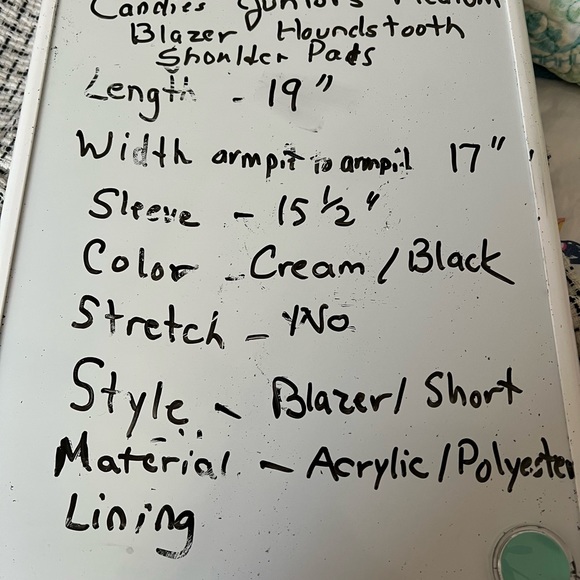 Candies Juniors Medium
Blazer Houndstooth
Shoulder Pads
Length - 19"
Width armpit to armpit 17"
Sleeve - 15 1/2"
Color - Cream / Black
Stretch - No
Style - Blazer / Short
Material - Acrylic / Polyester
Lining